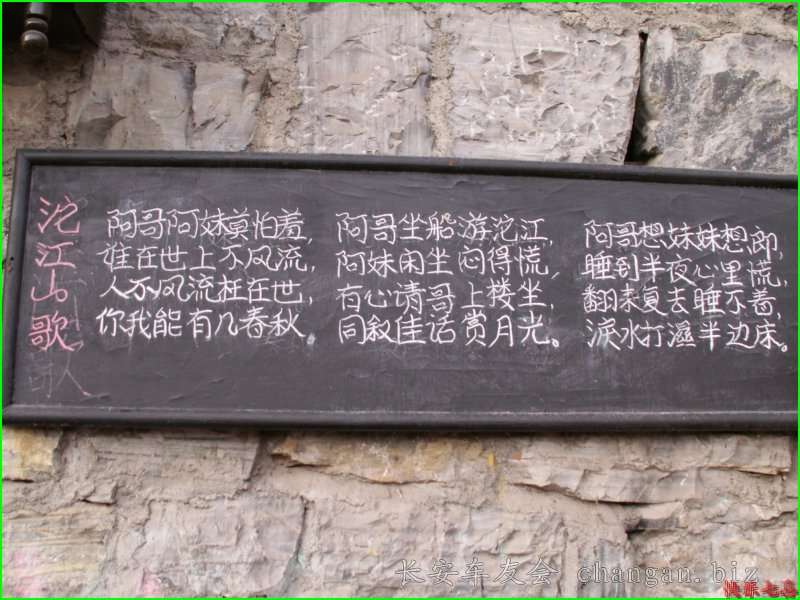 沱江山歌
阿哥阿妹莫怕羞，
谁在世上不风流，
人不风流枉在世，
你我能有几春秋
阿哥坐船游沱江，
阿妹闲坐闷得慌，
有心请哥上楼坐，
同叙佳话赏月光。
阿哥想妹妹想郎，
睡到半夜心里慌，
翻来复去睡不着，
泪水打湿半边床。
长安车友会 changan.biz